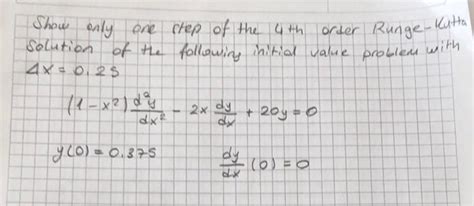 Show only one step of the 4th order Runge-Kutta
Solution of the following initial value problem with
Δx = 0.25
(1-x²) d²y/dx² - 2x dy/dx + 20y = 0
y(0) = 0.375 dy/dx (0) = 0